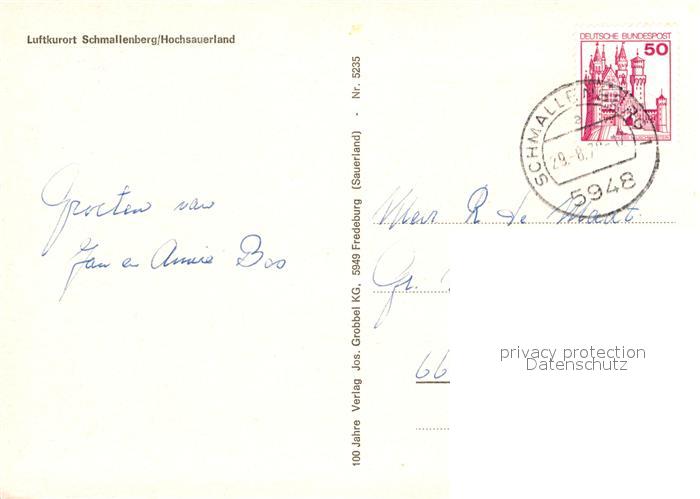 Luftkurort Schmallenberg/Hochsauerland
Groeten van
Jan en Annie Bos
100 Jahre Verlag Jos. Grobbel KG, 5949 Fredeburg (Sauerland) - Nr. 5235
DEUTSCHE BUNDESPOST
50
SCHMALLENBERG 1
a
29.-8.7
5948
R de
Gr.
66
privacy protection
Datenschutz